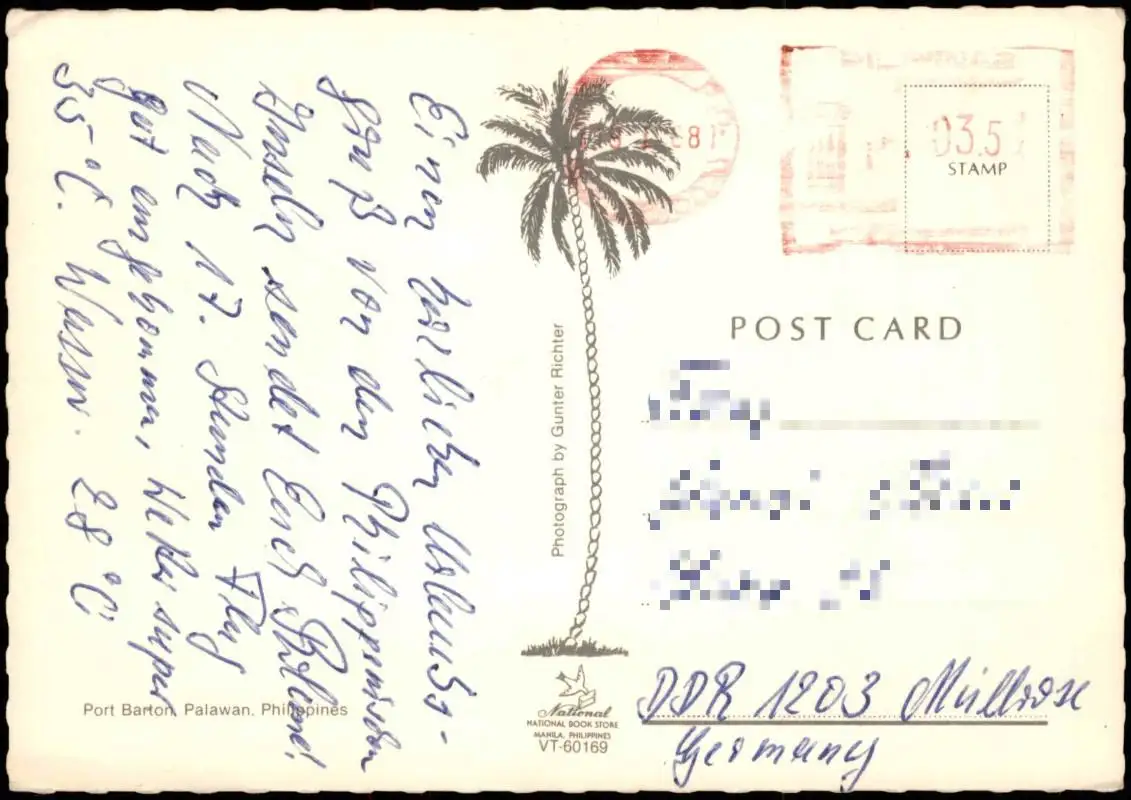 Einen herzlichen Urlaubs-
gruß von den Philippinischen
Inseln sendet Euch
Nach 17. Stunden Flug
gut angekommen, Wetter super
35 °C. Wasser. 28 °C
Port Barton, Palawan, Philippines
Photograph by Gunter Richter
National
NATIONAL BOOK STORE
MANILA, PHILIPPINES
VT-60169
03.5
STAMP
POST CARD
DDR 1203 Müllrose
Germany